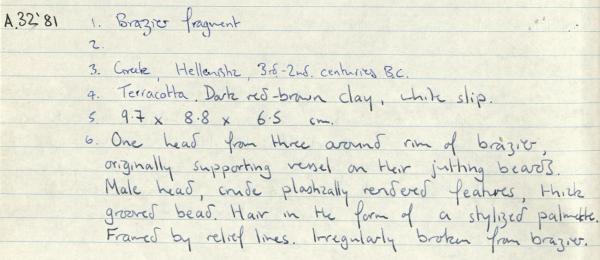 A.32'81 1. Brazier fragment
2.
3. Greek, Hellenistic, 3rd-2nd. centuries B.C.
4. Terracotta. Dark red-brown clay, white slip.
5 9.7 x 8.8 x 6.5 cm.
6. One head from three around rim of brazier,
originally supporting vessel on their jutting beards.
Male head, crude plastically rendered features, thick
grooved bead. Hair in the form of a stylized palmette.
Framed by relief lines. Irregularly broken from brazier.